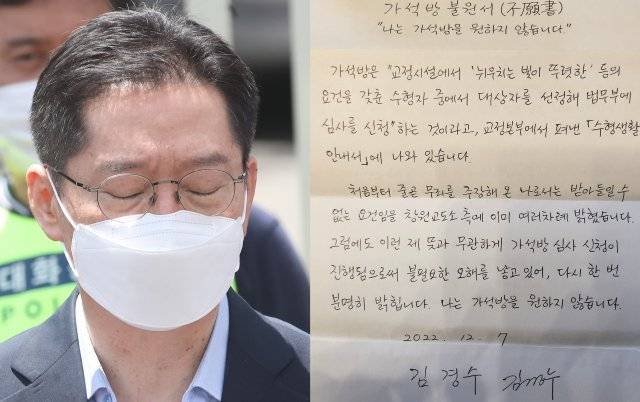 가석방 불원서(不願書)
"나는 가석방을 원하지 않습니다."
가석방은 "교정시설에서 '뉘우치는 빛이 뚜렷한' 등의
요건을 갖춘 수형자 중에서 대상자를 선정해 법무부에
심사를 신청"하는 것이라고, 교정본부에서 펴낸 「수형생활
안내서」에 나와 있습니다.
처음부터 줄곧 무죄를 주장해 온 나로서는 받아들일 수
없는 요건임을 창원교도소 측에 이미 여러차례 밝혔습니다.
그럼에도 이런 제 뜻과 무관하게 가석방 심사 신청이
진행됨으로써 불필요한 오해를 낳고 있어, 다시 한 번
분명히 밝힙니다. 나는 가석방을 원하지 않습니다.
2022. 12. 7
김 경 수
대화
POL